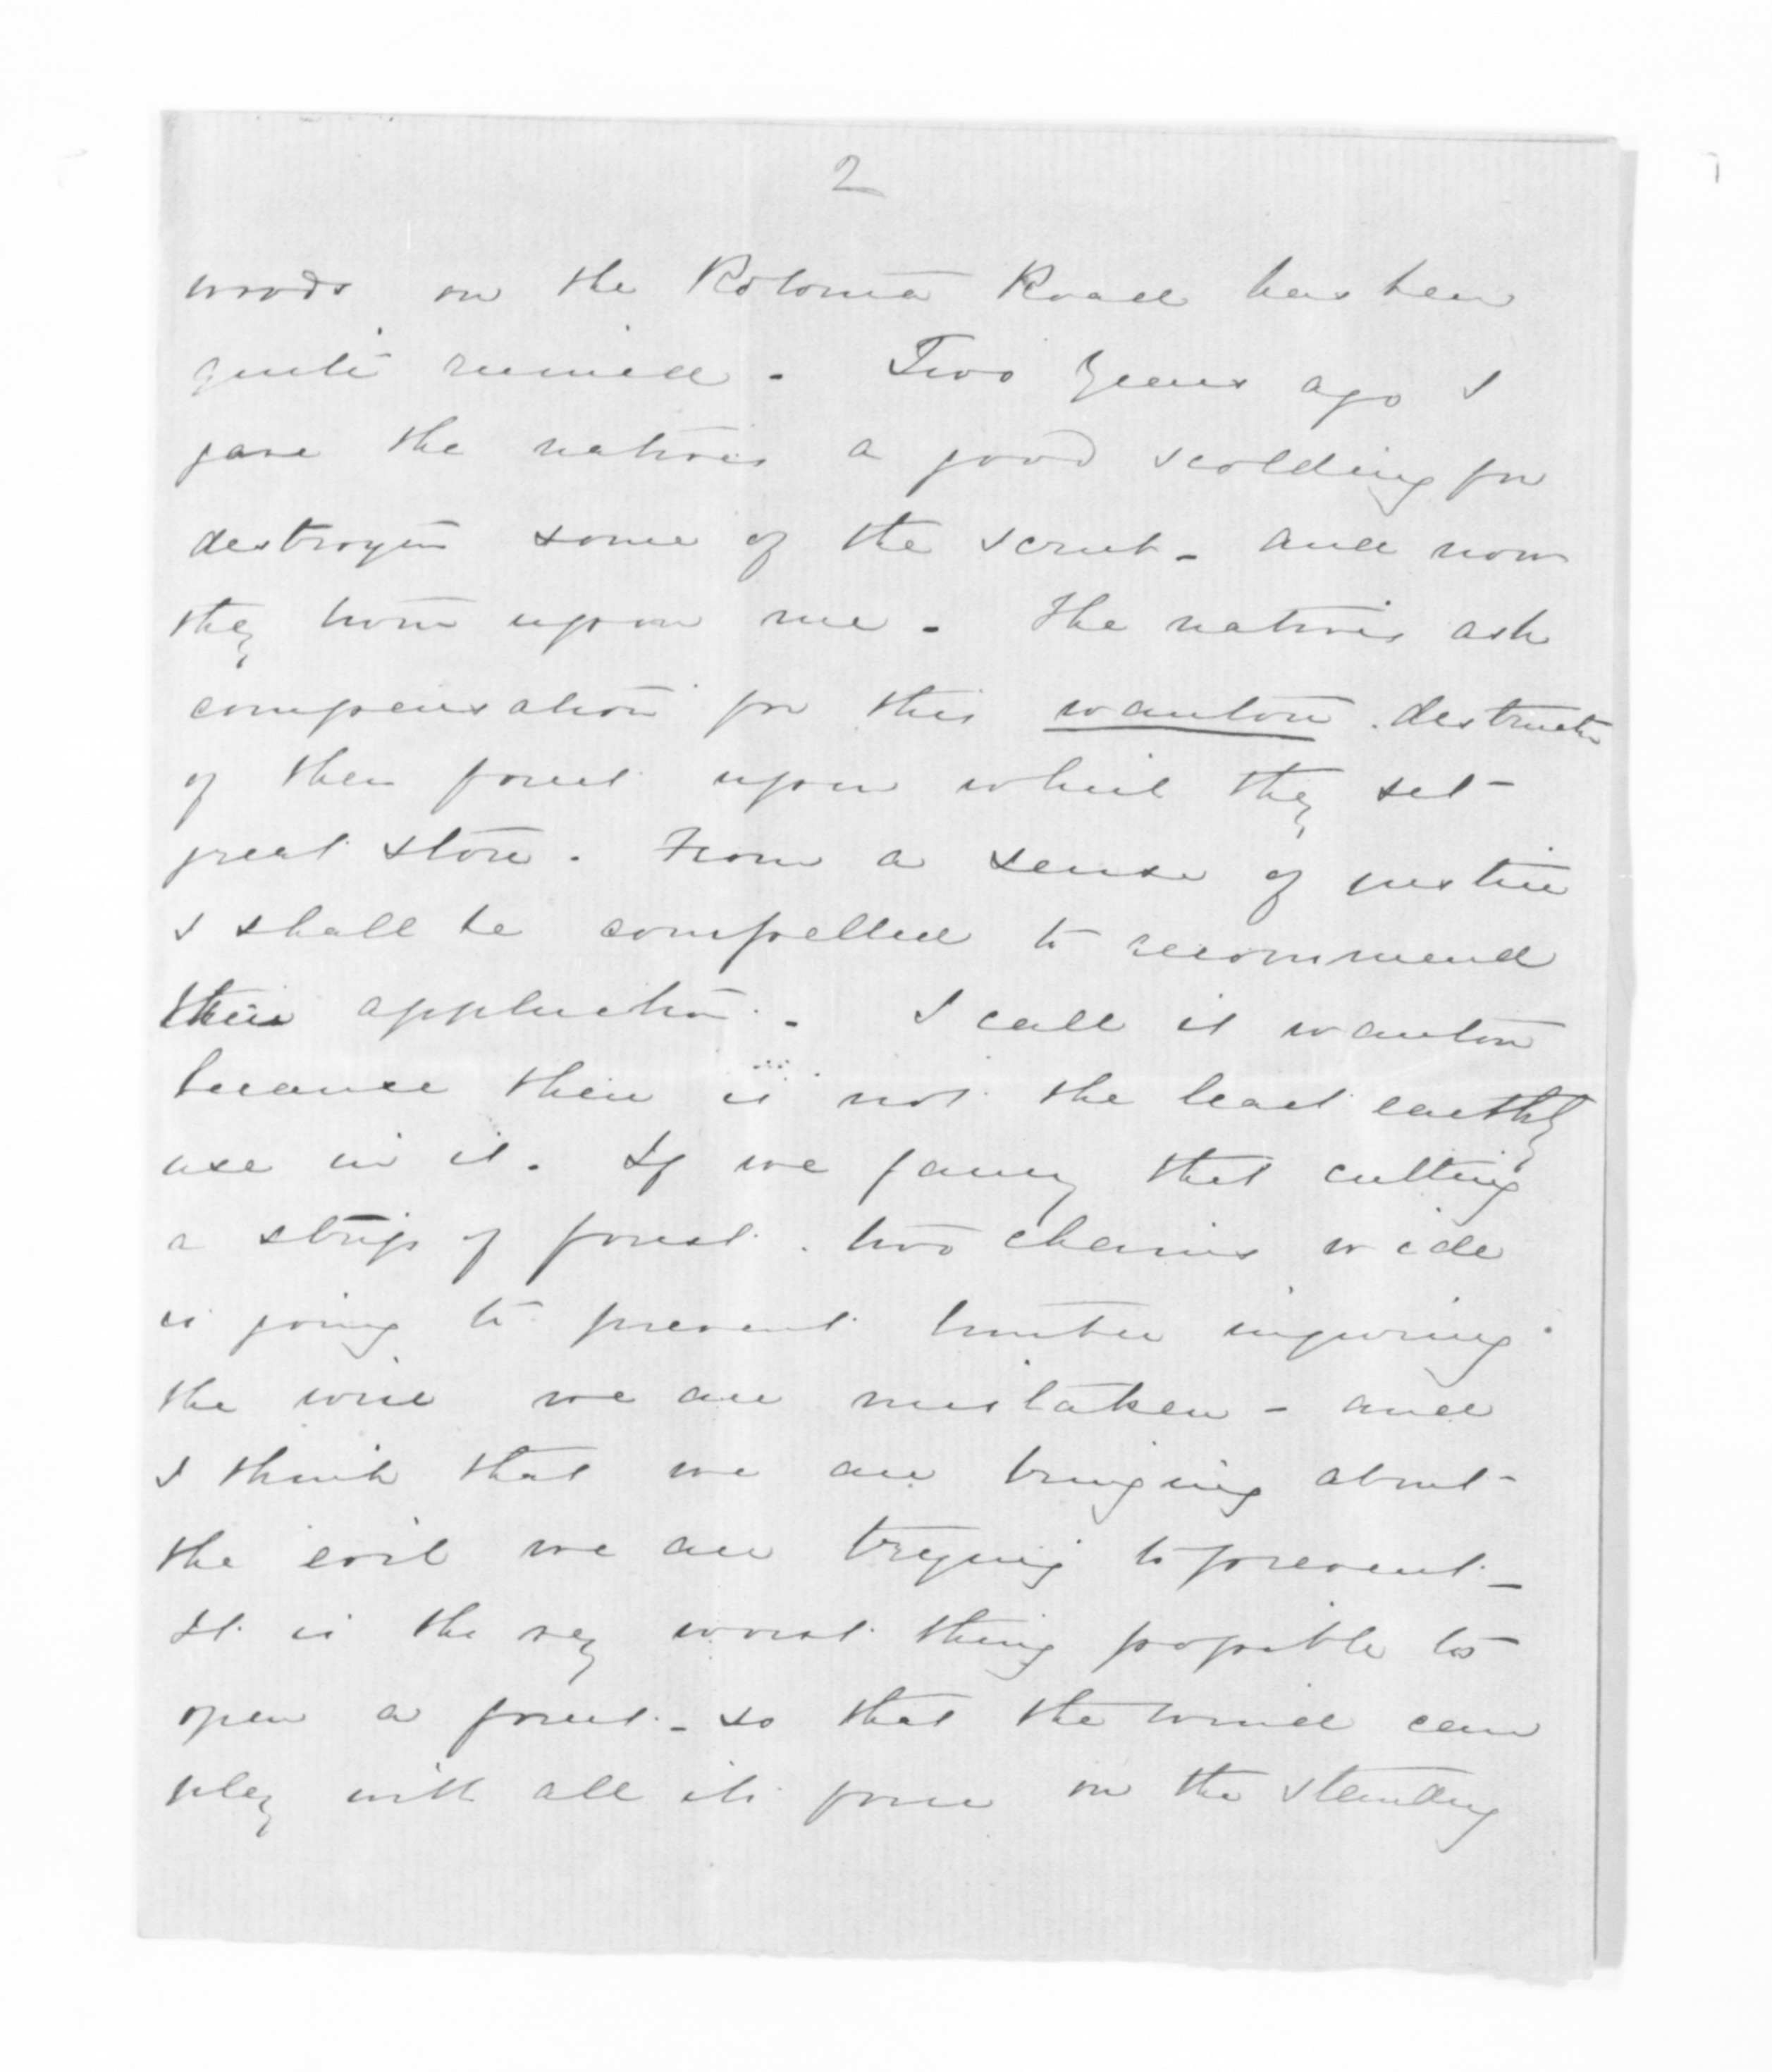 2
woods on the Rotorua Road has been
quite ruined. Two years ago I
gave the natives a good scolding for
destroying some of the scrub - and now
they turn upon me. The natives ask
compensation for this wanton destruction
of their forest upon which they set
great store. From a sense of justice
I shall be compelled to recommend
their application. I call it wanton
because there is not the least earthly
use in it. If we fancy that cutting
a strip of forest two chains wide
is going to prevent timber injuring
the wire we are mistaken - and
I think that we are bringing about
the evil we are trying to prevent -
It is the very worst thing possible to
open a forest - so that the wind can
play with all its force on the standing